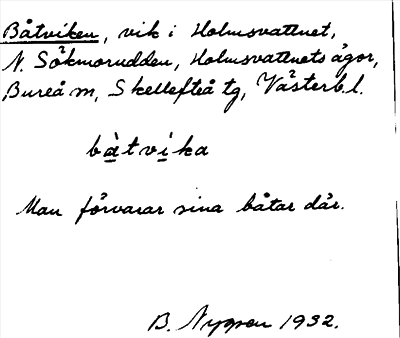 Båtviken, vik i Holmsvattnet,
N. Sökmorudden, Holmsvattnets ägor,
Bureå m, Skellefteå tg, Västerb.l.
bàtvika
Man förvarar sina båtar där.
B. Nygren 1932.